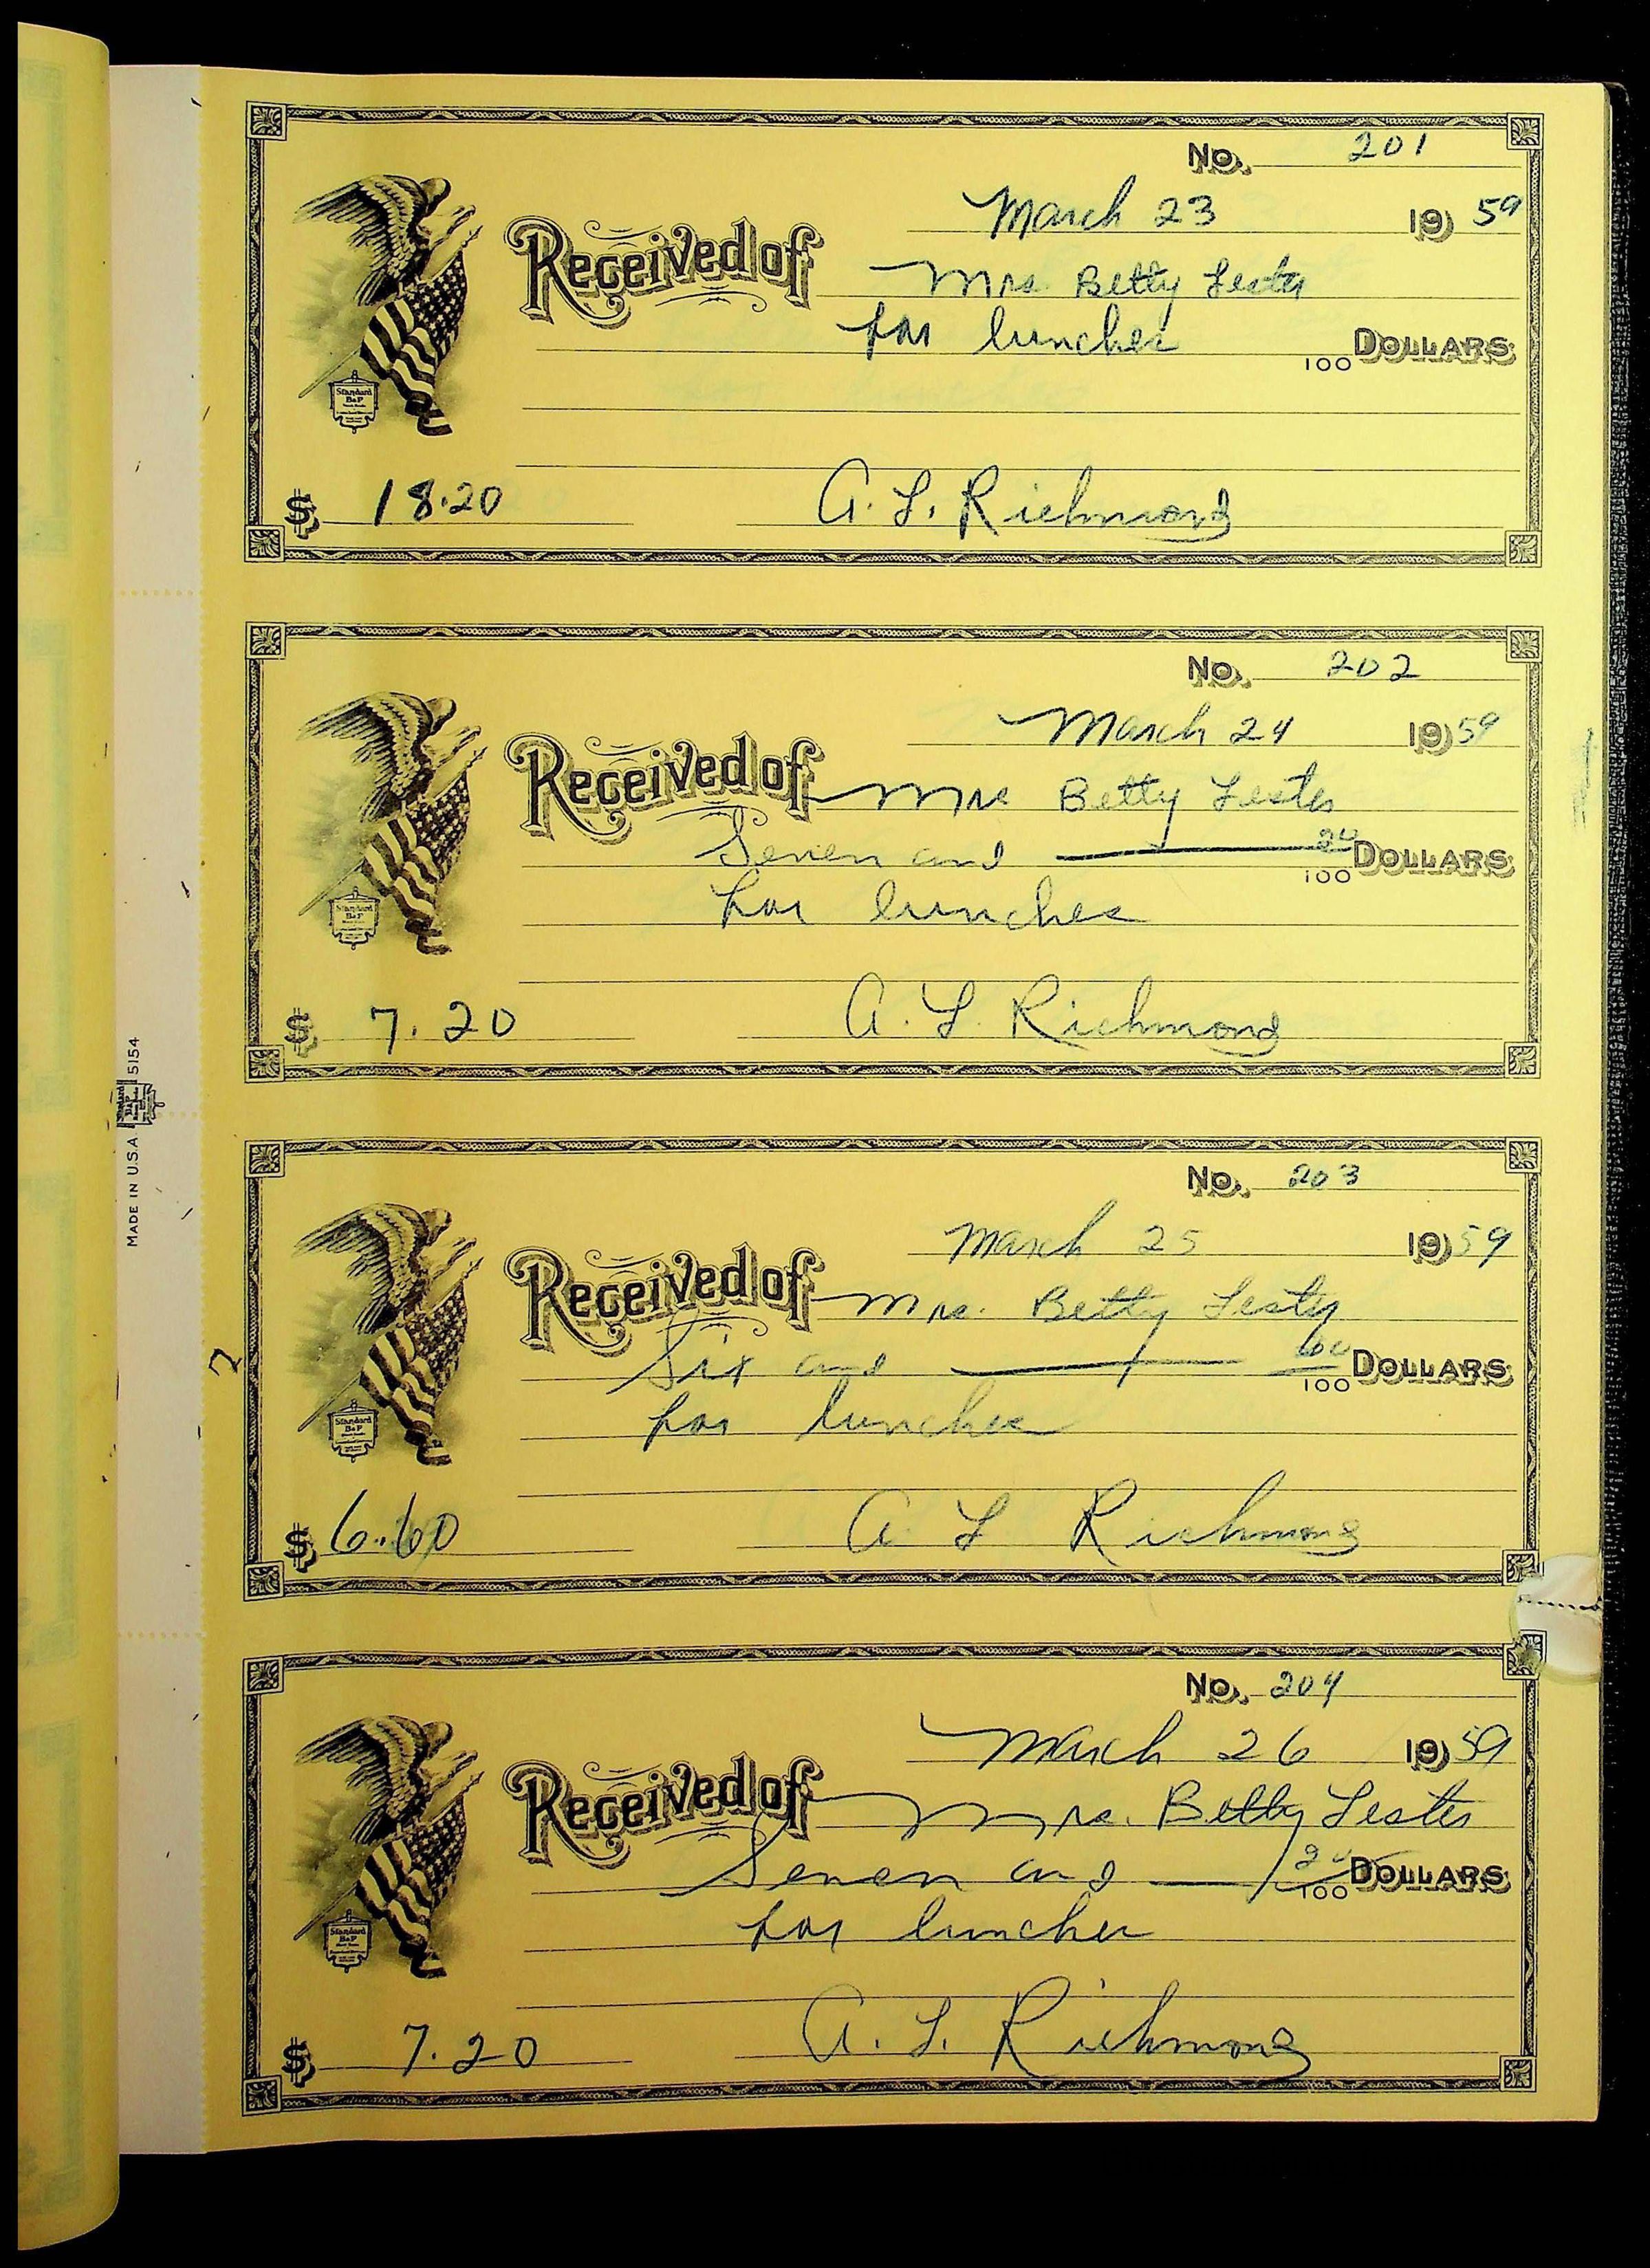 No. 201
March 23 19 59
Received of Mrs. Betty Lester
for lunches
100 DOLLARS
$ 18.20 A. L. Richmond
No. 202
March 24 19 59
Received of Mrs Betty Lester
Seven and 20
100 DOLLARS
for lunches
$ 7.20 A. L. Richmond
No. 203
March 25 19 59
Received of Mrs. Betty Lester
Six and 60
100 DOLLARS
for lunches
$ 6.60 A L Richmond
No. 204
March 26 19 59
Received of Mrs. Betty Lester
Seven and 20
100 DOLLARS
for lunches
$ 7.20 A. L. Richmond
MADE IN U.S.A 5154
Standard
B&P
Standard
B&P
Standard
B&P
Standard
B&P